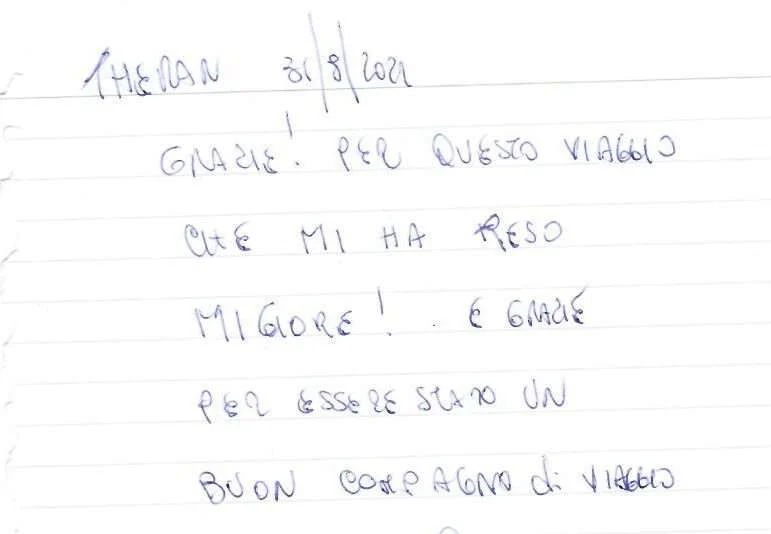 THERAN 31/8/2021
GRAZIE! PER QUESTO VIAGGIO
CHE MI HA RESO
MIGIORE! . E GRAZIE
PER ESSERE STATO UN
BUON COMPAGNO di VIAGGIO